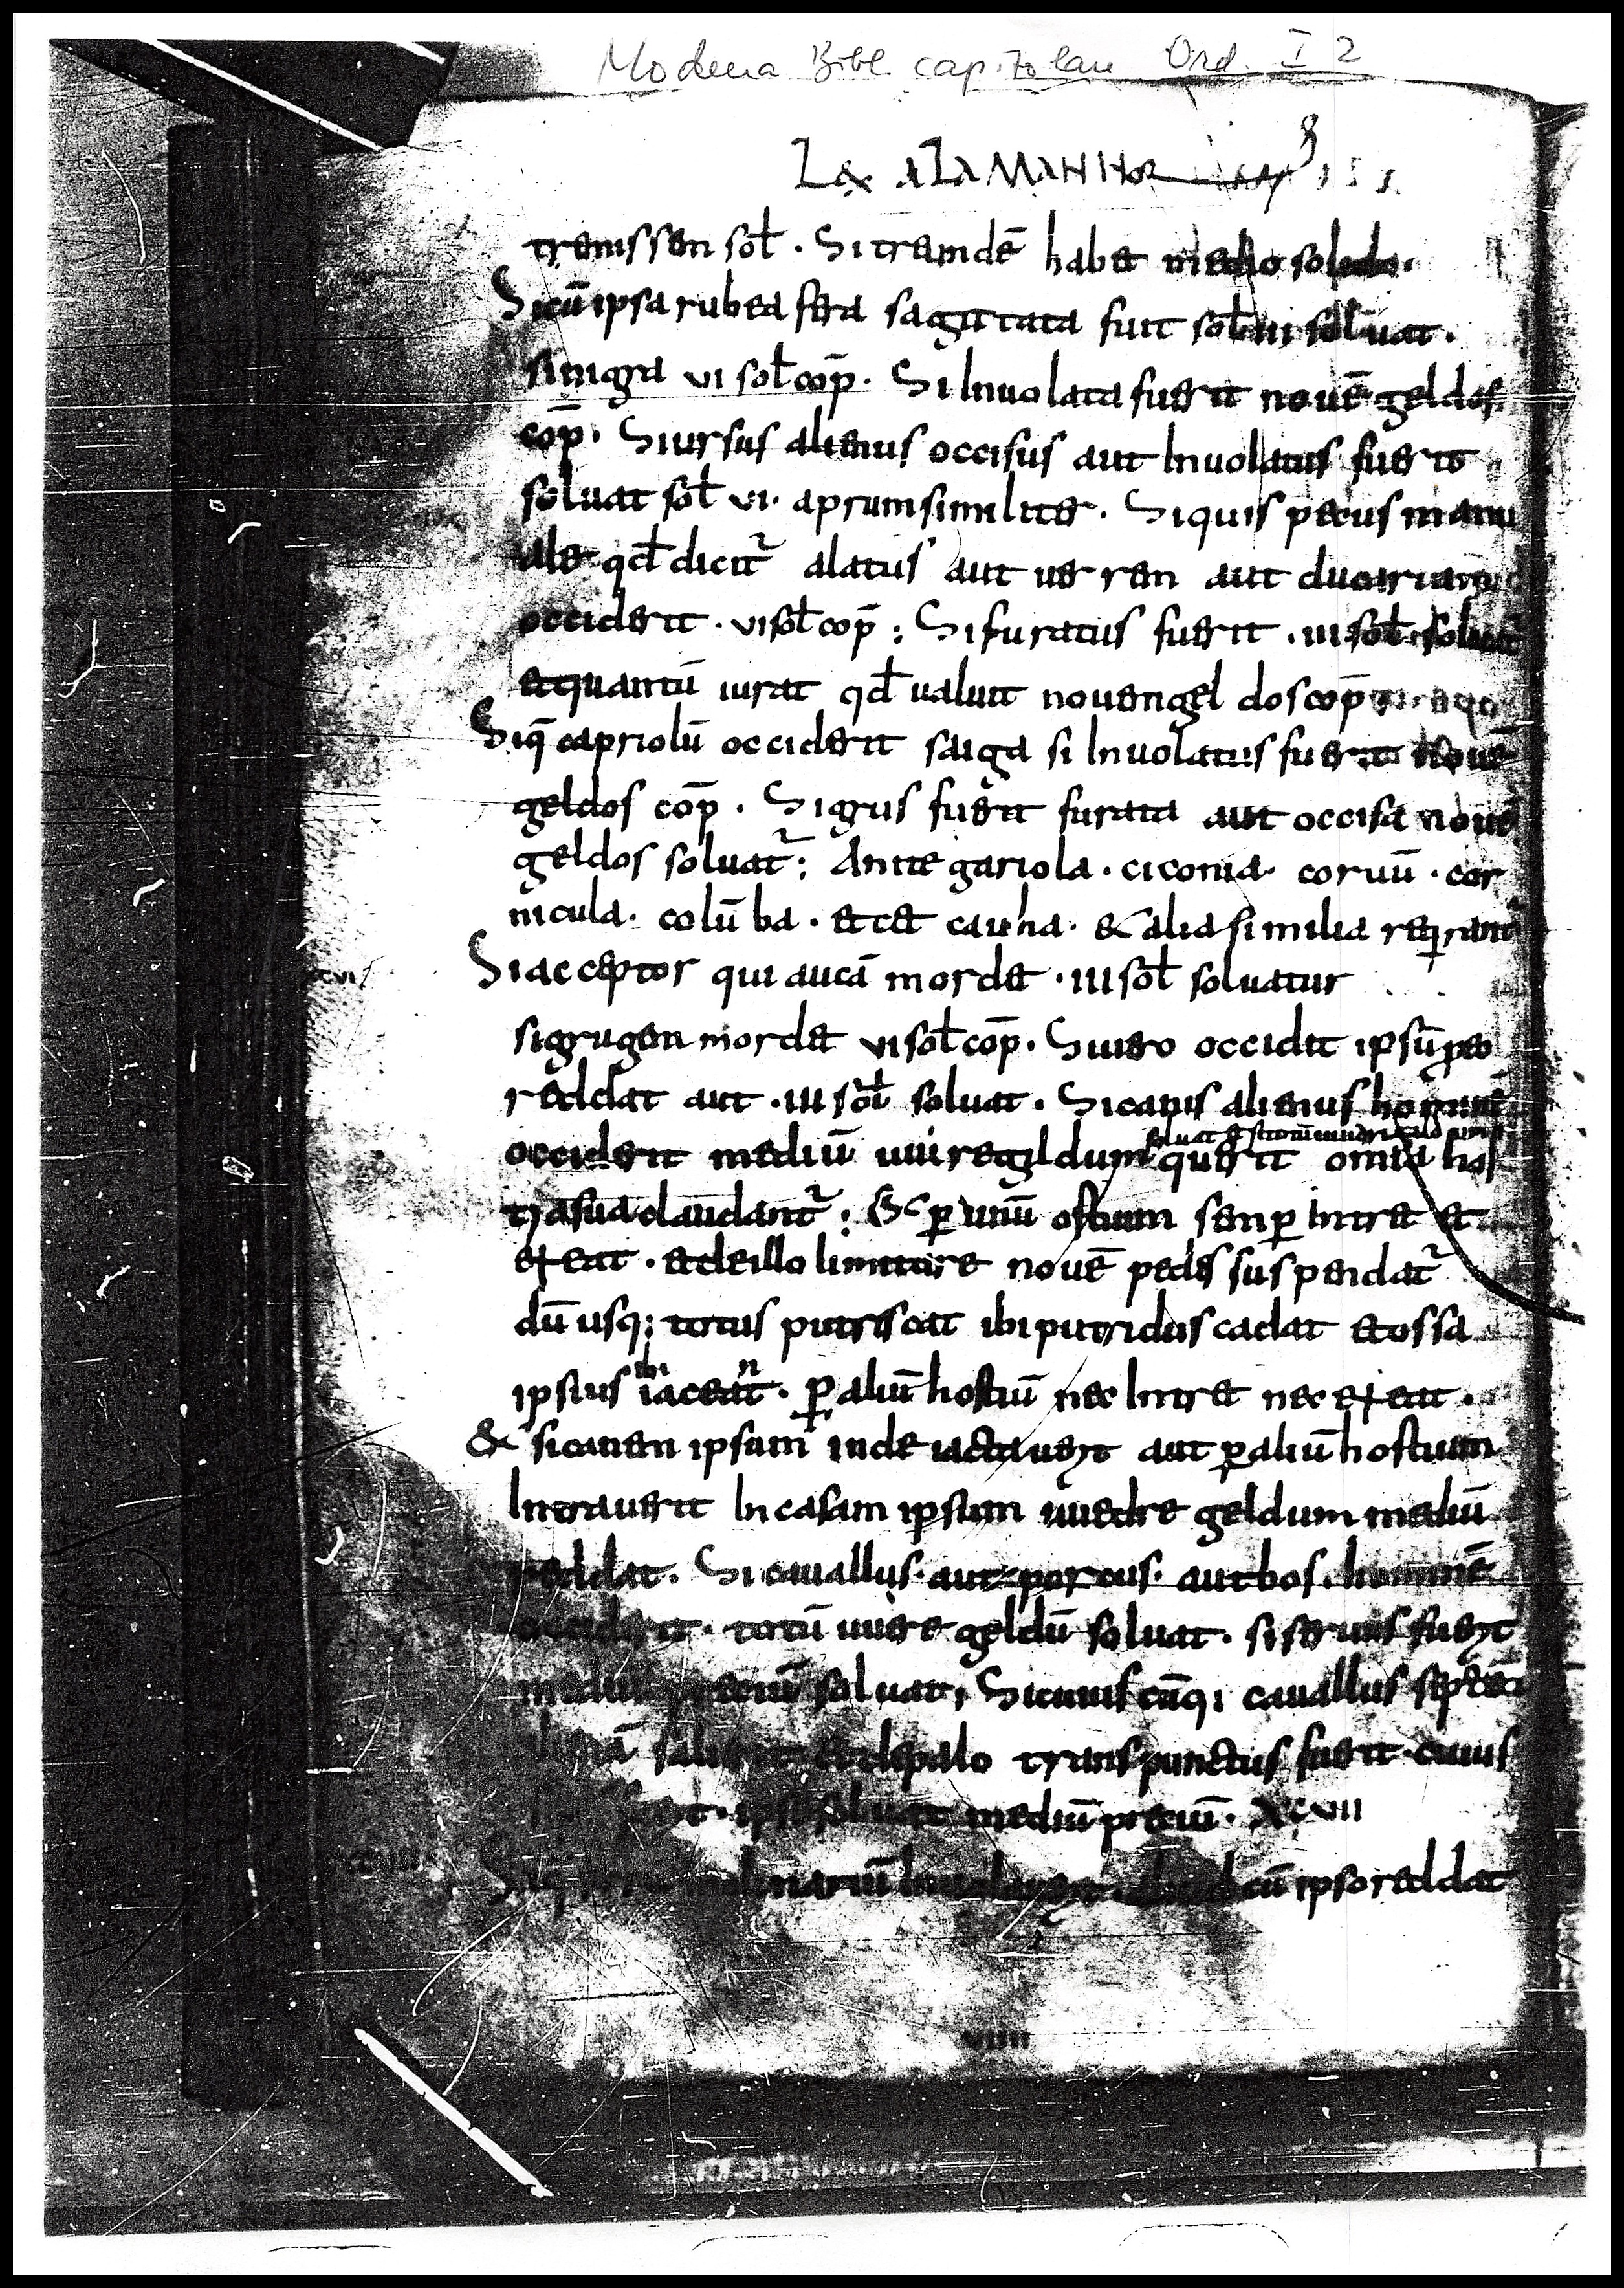 Modena Bibl. capitolare Ord. I 2
Lex ALAMANNOR
tremissem sol̄ . Si tremdē habet medio solido.
Sicū ipsa rubea fera sagittata fuit sol̄ iii soluat.
si nigra vi sol̄ cōp̄. Si Inuolata fuerit nouē geldos
cōp̄. Si ursus alienus occisus aut Inuolatus fuerit
soluat sol̄ vi. aprum similiter. Si quis pecus manu
ale qd̄ dicit̄ alatus aut uerren aut ducariam
occiderit. vi sol̄ cōp̄ ; Si furatus fuerit . iii sol̄ soluat
et quantū iurat qd̄ ualuit nouengeldos cōp̄
Siq̄ capriolū occiderit saiga si Inuolatus fuerit nouē
geldos cōp̄ . Si grus fuerit furata aut occisa nouē
geldos soluat̄ ; Ante gariola . ciconia . coruū . cor
nicula . colūba . et cet cauha . & alia similia reqrant̄
Si acceptor qui aucā mordet . iii sol̄ soluatur
si grugem mordet vi sol̄ cōp̄. Si uero occidit ipsū
reddat aut . iii sol̄ soluat . Si canis alienus hominē
occiderit mediū uuiregildum querit omnia hos
tia sua claudant̄ ; Et p̄ unū ostium semp̄ Intret et
exeat . et de illo limitare nouē pedes suspendat̄
dū usq; totus putrescat ibi putridus cadat et ossa
ipsius ibi iaceant . p̄ aliū hostiū nec Intret nec exeat .
& si canem ipsum inde iactauerit aut p̄ aliū hostium
Intrauerit In casam ipsum uuedre geldum mediū
reddat . Si cauallus . aut porcus . aut bos . hominē
occiderit . totū uuere geldū soluat . si seruus fuerit
mediū preciū soluat; Si cuius cūq; cauallus sepem
saluerit et de palo transpunctus fuerit cuius
fuerit . ipse soluat mediū preciū . XCVII
cū ipso reddat
VIIII